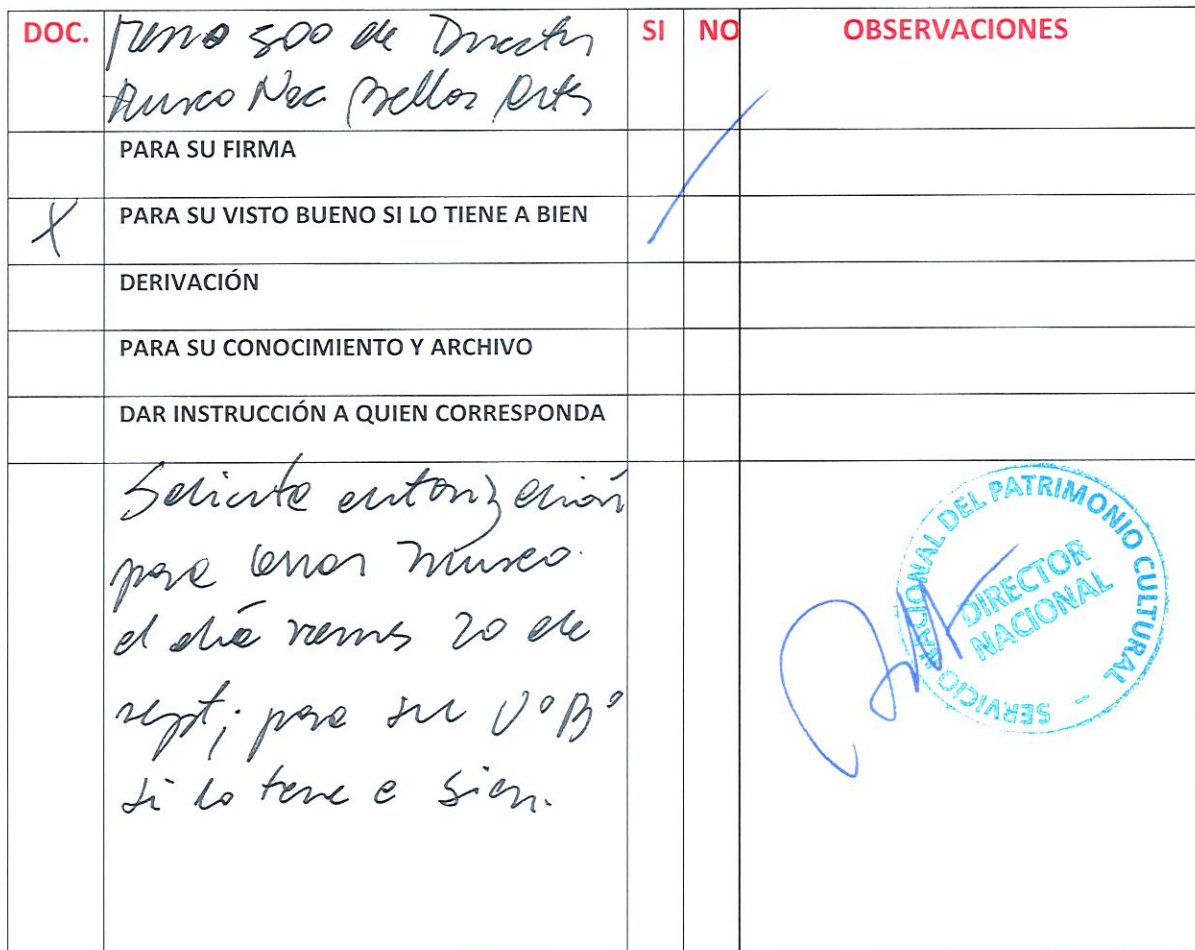 DOC. Memo 500 de Director SI NO OBSERVACIONES
Museo Nac Bellas Artes
PARA SU FIRMA
X PARA SU VISTO BUENO SI LO TIENE A BIEN
DERIVACIÓN
PARA SU CONOCIMIENTO Y ARCHIVO
DAR INSTRUCCIÓN A QUIEN CORRESPONDA
Solicita autorización
para cerrar museo
el día viernes 20 de
sept; para su VºBº
si lo tiene a bien.
SERVICIO NACIONAL DEL PATRIMONIO CULTURAL -
DIRECTOR
NACIONAL